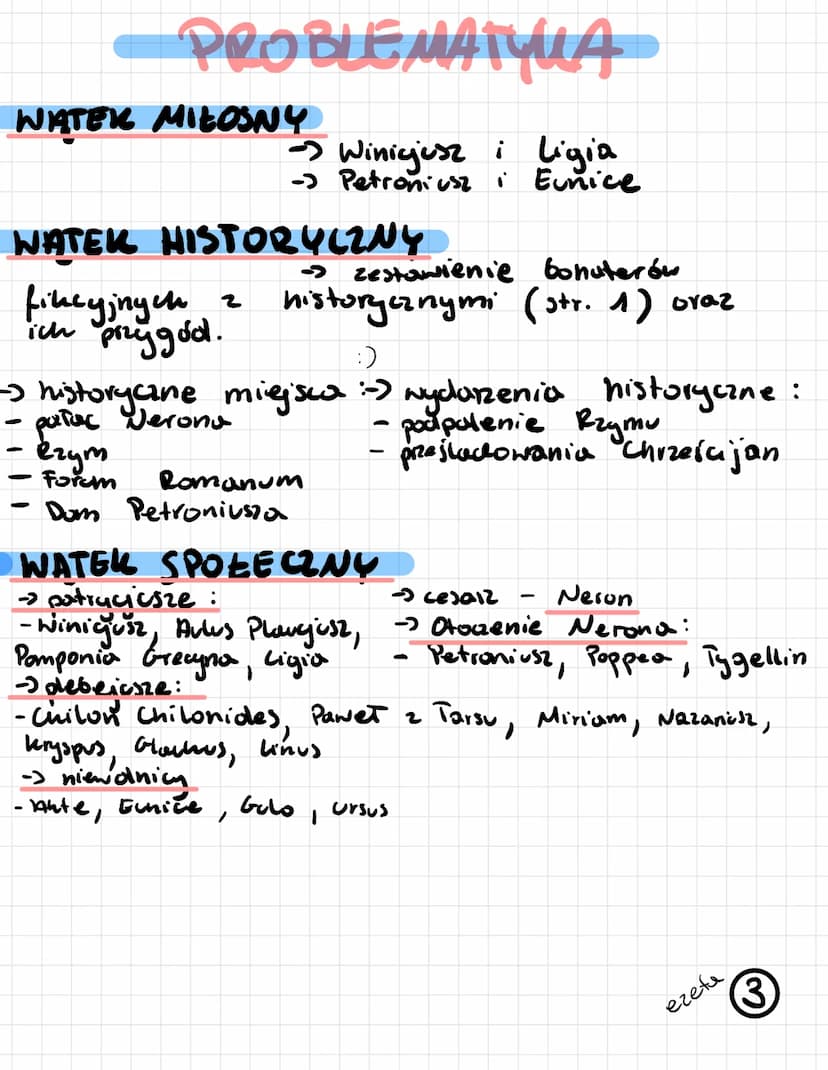 PROBLEMATYKA
WĄTEK MIŁOSNY
-> Winicjusz i Ligia
-> Petroniusz i Eunice
WĄTEK HISTORYCZNY
-> zestawienie bohaterów
fikcyjnych z historycznymi (str. 1) oraz
ich przygód.
:)
-> historyczne miejsca :
- pałac Nerona
- Rzym
- Forum Romanum
- Dom Petroniusza
-> wydarzenia historyczne :
- podpalenie Rzymu
- prześladowania Chrześcijan
WĄTEK SPOŁECZNY
-> patrycjusze :
- Winicjusz, Aulus Plaucjusz,
Pomponia Grecyna, Ligia
-> plebejusze :
- Chilon Chilonides, Paweł z Tarsu, Miriam, Nazariusz,
Kryspus, Glaukus, Linus
-> niewolnicy
- Akte, Eunice, Gulo, Ursus
-> cesarz - Neron
-> Otoczenie Nerona :
- Petroniusz, Poppea, Tygellin
ezeta
3